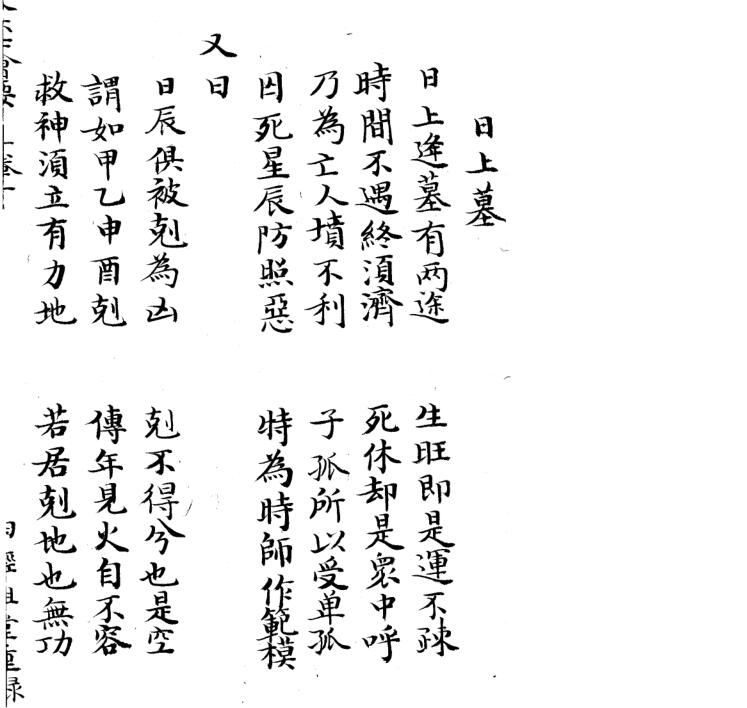 日上墓
日上逢墓有两途 生旺即是運不疎
時間不遇終須濟 死休却是裏中呼
乃為亡人墳不利 子孤所以受单孤
囚死星辰防照惡 特為時師作範模
又曰
日辰俱被剋為凶 剋不得兮也是空
謂如甲乙申酉剋 傳年見火自不容
救神須立有力地 若居剋地也無功